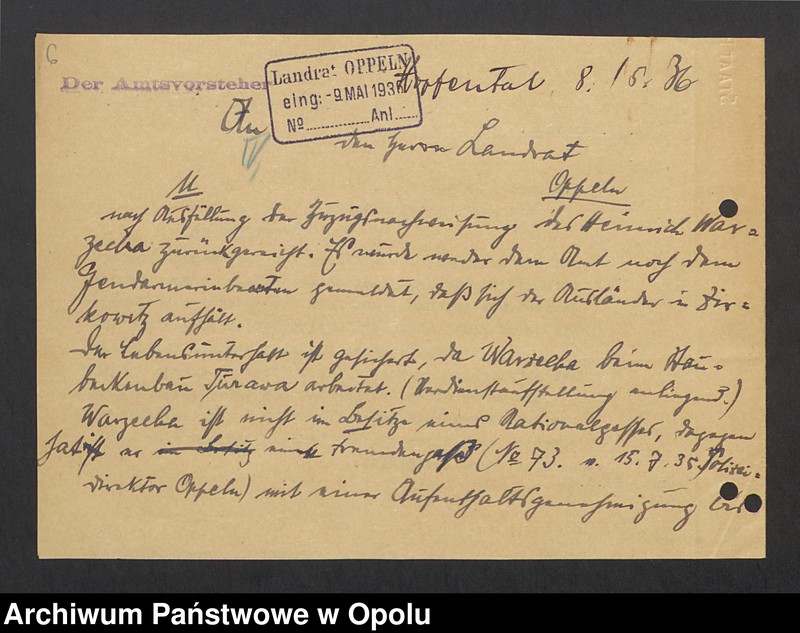 6
Der Amtsvorsteher
Landrat OPPELN
eing: -9. MAI 1936
Nº ........ Anl. ......
8. 5. 36
An
den Herrn Landrat
Oppeln
U
nach Ausfüllung der Zuzugsnachweisung des Heinrich War=
zecha zurückgereicht. Es wurde weder dem Amt noch dem
Gendarmeriebeamten gemeldet, daß sich der Ausländer in Zir=
kowitz aufhält.
Der Lebensunterhalt ist gesichert, da Warzecha beim Stau=
beckenbau Turawa arbeitet. (Verdienstaufstellung anliegend.)
Warzecha ist nicht im Besitze eines Nationalpasses, dagegen
hat er im Besitz einen Fremdenpaß (No 73. v. 15.7.35. Polizei=
direktor Oppeln) mit einer Aufenthaltsgenehmigung bis
Archiwum Państwowe w Opolu